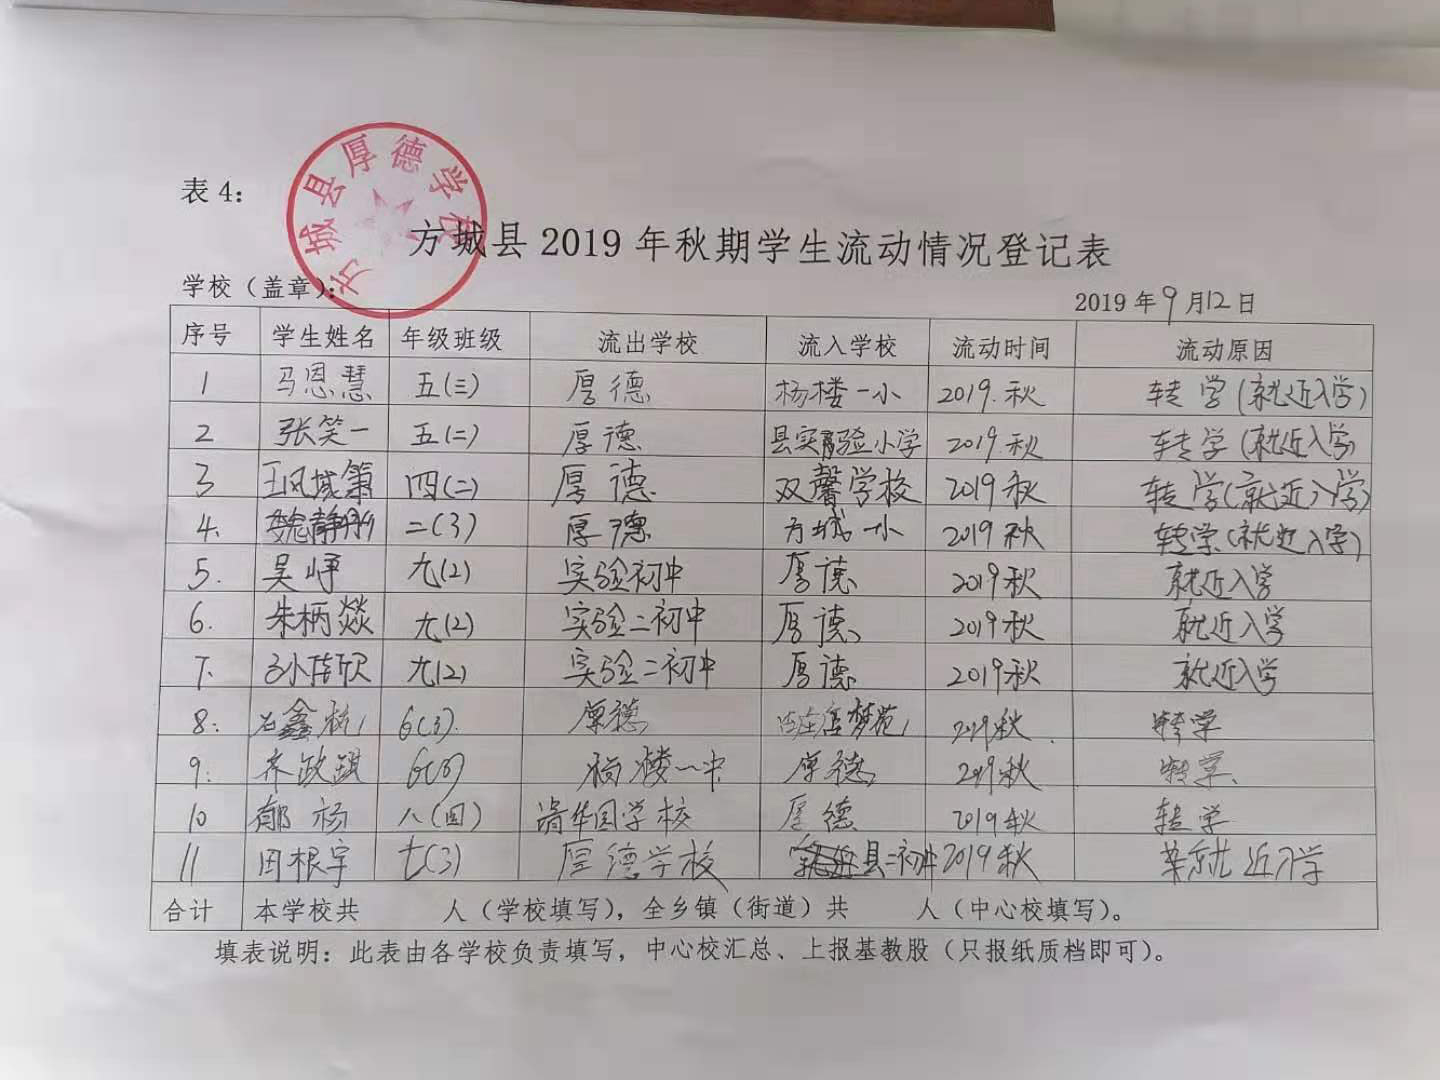 方城县厚德学校
表 4：
方城县 2019 年秋期学生流动情况登记表
学校（盖章）：
2019 年 9 月 12 日
序号 学生姓名 年级班级 流出学校 流入学校 流动时间 流动原因
1 马恩慧 五(三) 厚德 杨楼一小 2019.秋 转学(就近入学)
2 张笑一 五(二) 厚德 县实验小学 2019.秋 转学(就近入学)
3 四(二) 厚德 双馨学校 2019秋 转学(就近入学)
4. 魏静 二(3) 厚德 方城一小 2019秋 转学(就近入学)
5. 吴峥 九(2) 实验初中 厚德 2019秋 就近入学
6. 朱柄燚 九(2) 实验二初中 厚德 2019秋 就近入学
7. 九(2) 实验二初中 厚德 2019秋 就近入学
8. 6(3). 厚德 2019秋 转学
9. 齐政 杨楼一中 厚德 2019秋 转学
10 郁杨 八(四) 清华园学校 厚德 2019秋 转学
11 田根宇 七(3) 厚德学校 县二初中 2019秋 就近入学
合计 本学校共 人（学校填写），全乡镇（街道）共 人（中心校填写）。
填表说明：此表由各学校负责填写，中心校汇总、上报基教股（只报纸质档即可）。